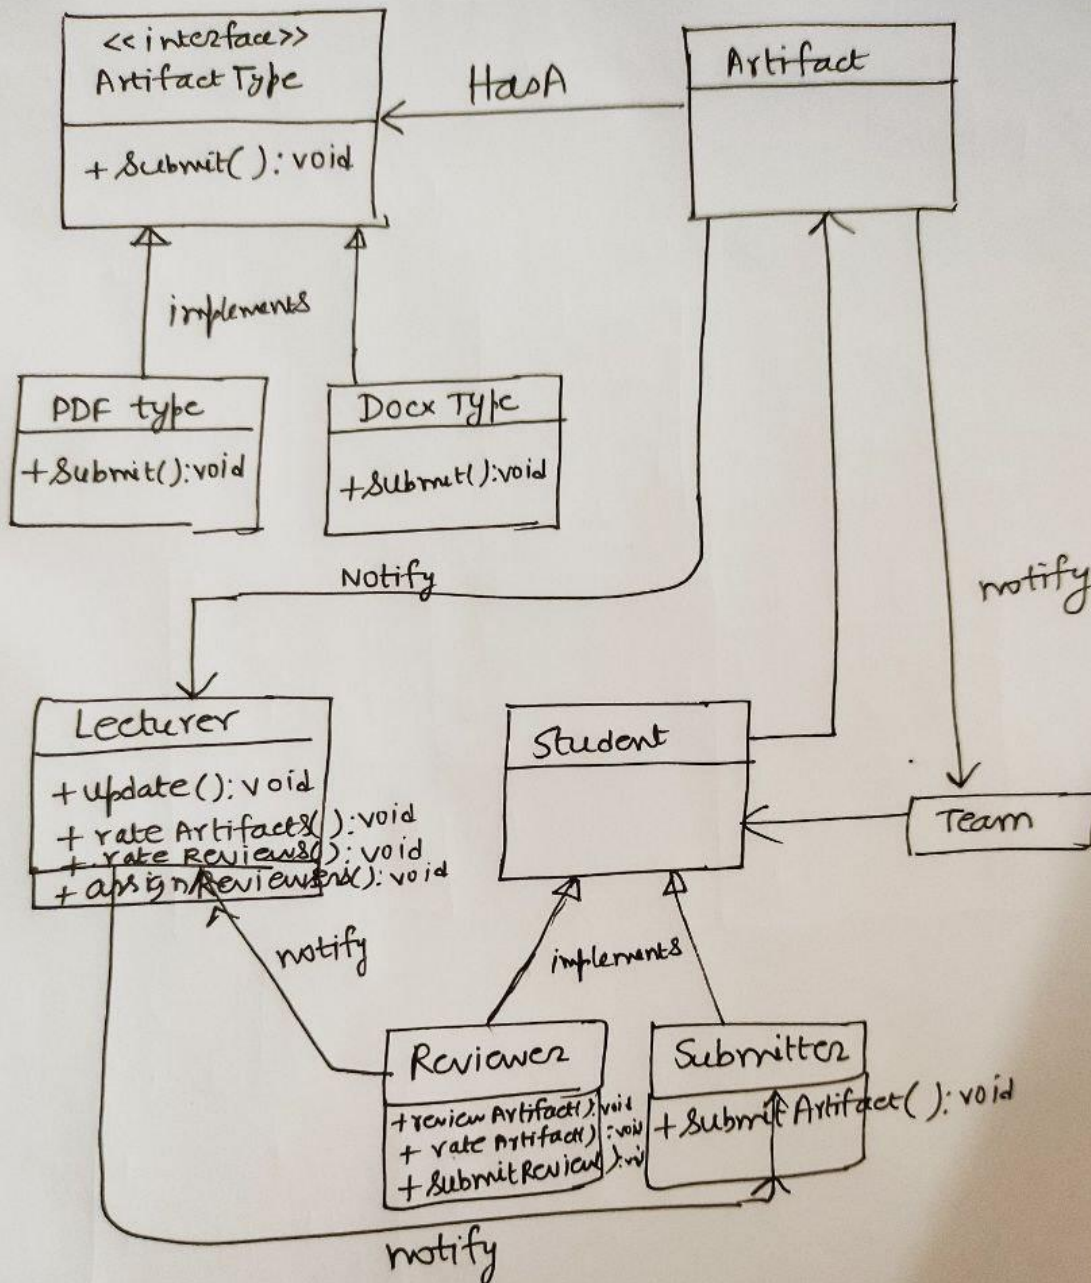 <<interface>>
Artifact Type
+ Submit( ): void
HasA
Artifact
implements
PDF type
+ Submit(): void
Docx Type
+ Submit(): void
Notify
notify
Lecturer
+ update(): void
+ rate Artifacts( ): void
+ rate Reviews(): void
+ assign Reviewers(): void
Student
Team
notify
implements
Reviewer
+ review Artifact( ): void
+ rate Artifact( ): void
+ Submit Review( ):
Submitter
+ Submit Artifact( ): void
notify